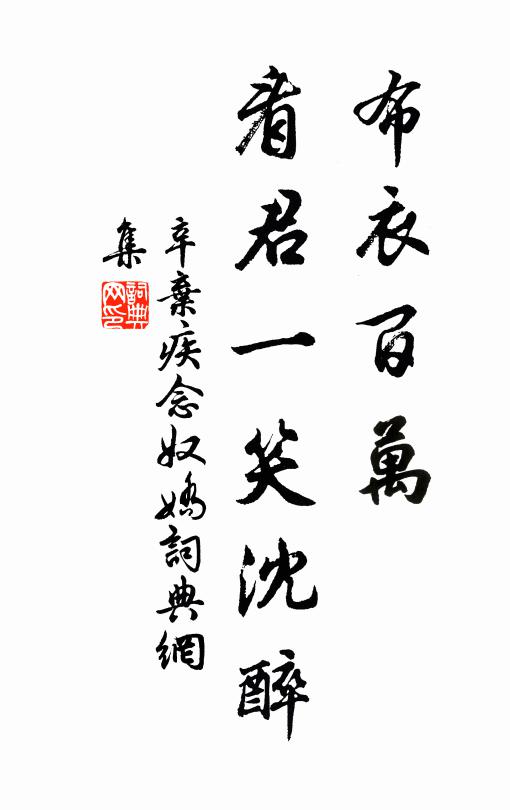 布衣百萬
看君一笑沈醉
辛棄疾念奴嬌詞典網
集
詞典
网印